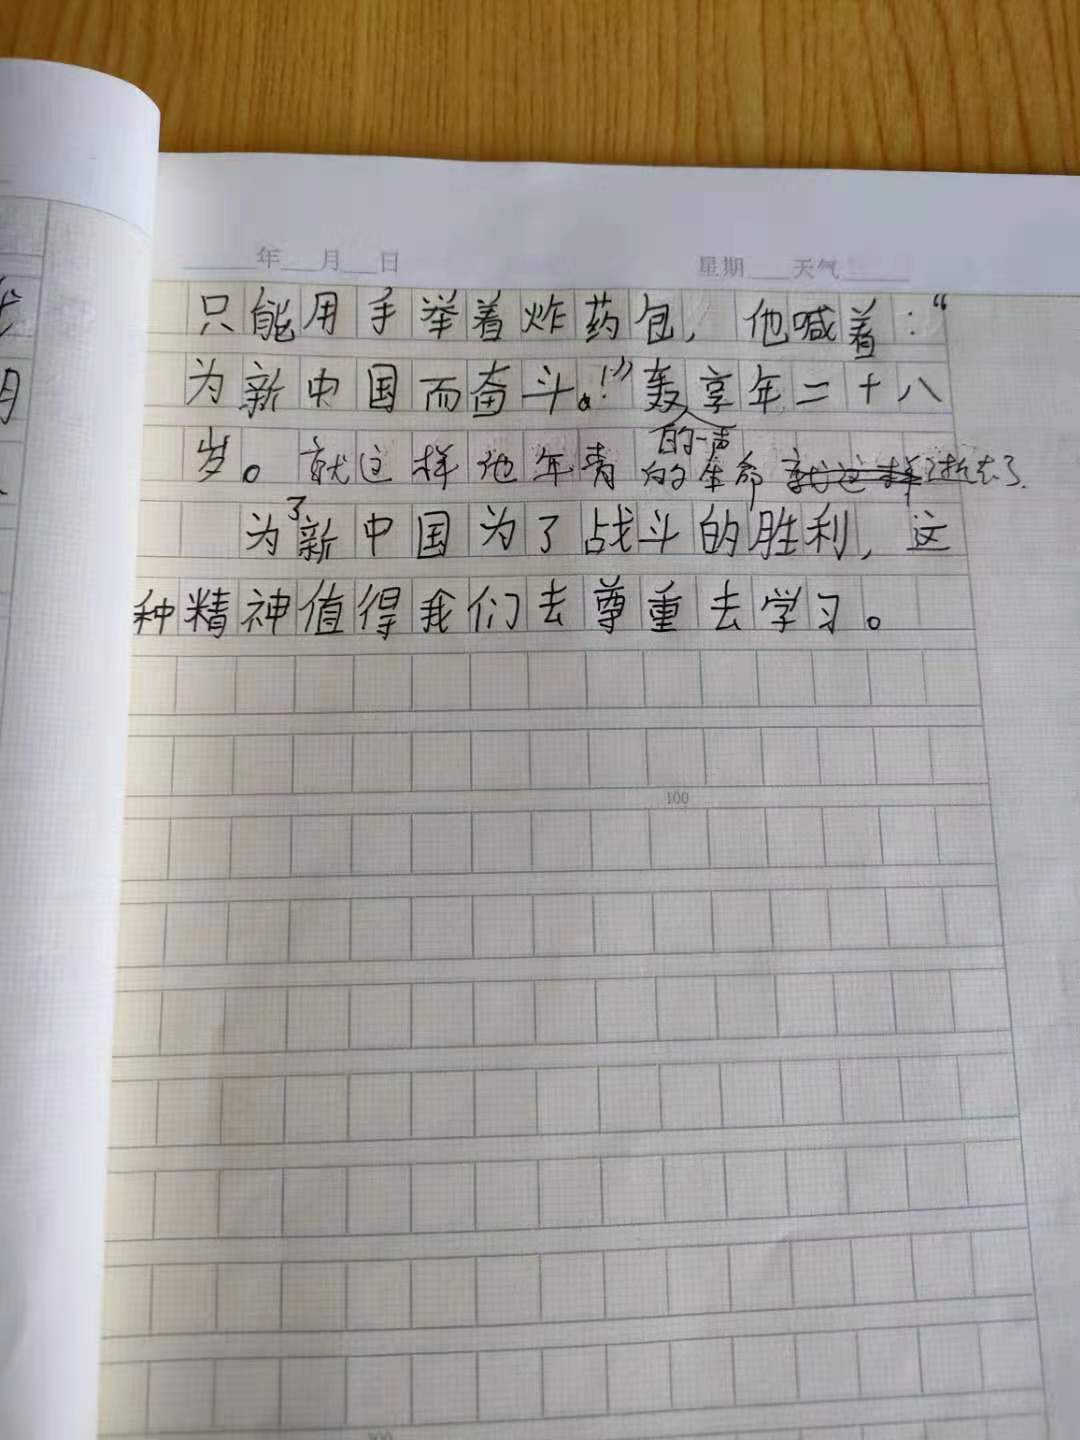 年 月 日 星期 天气
只能用手举着炸药包，他喊着：“
为新中国而奋斗。！”轰享年二十八
的一声
岁。就这样他年青的生命就这样逝去了.
了
为新中国为了战斗的胜利，这
种精神值得我们去尊重去学习。
100